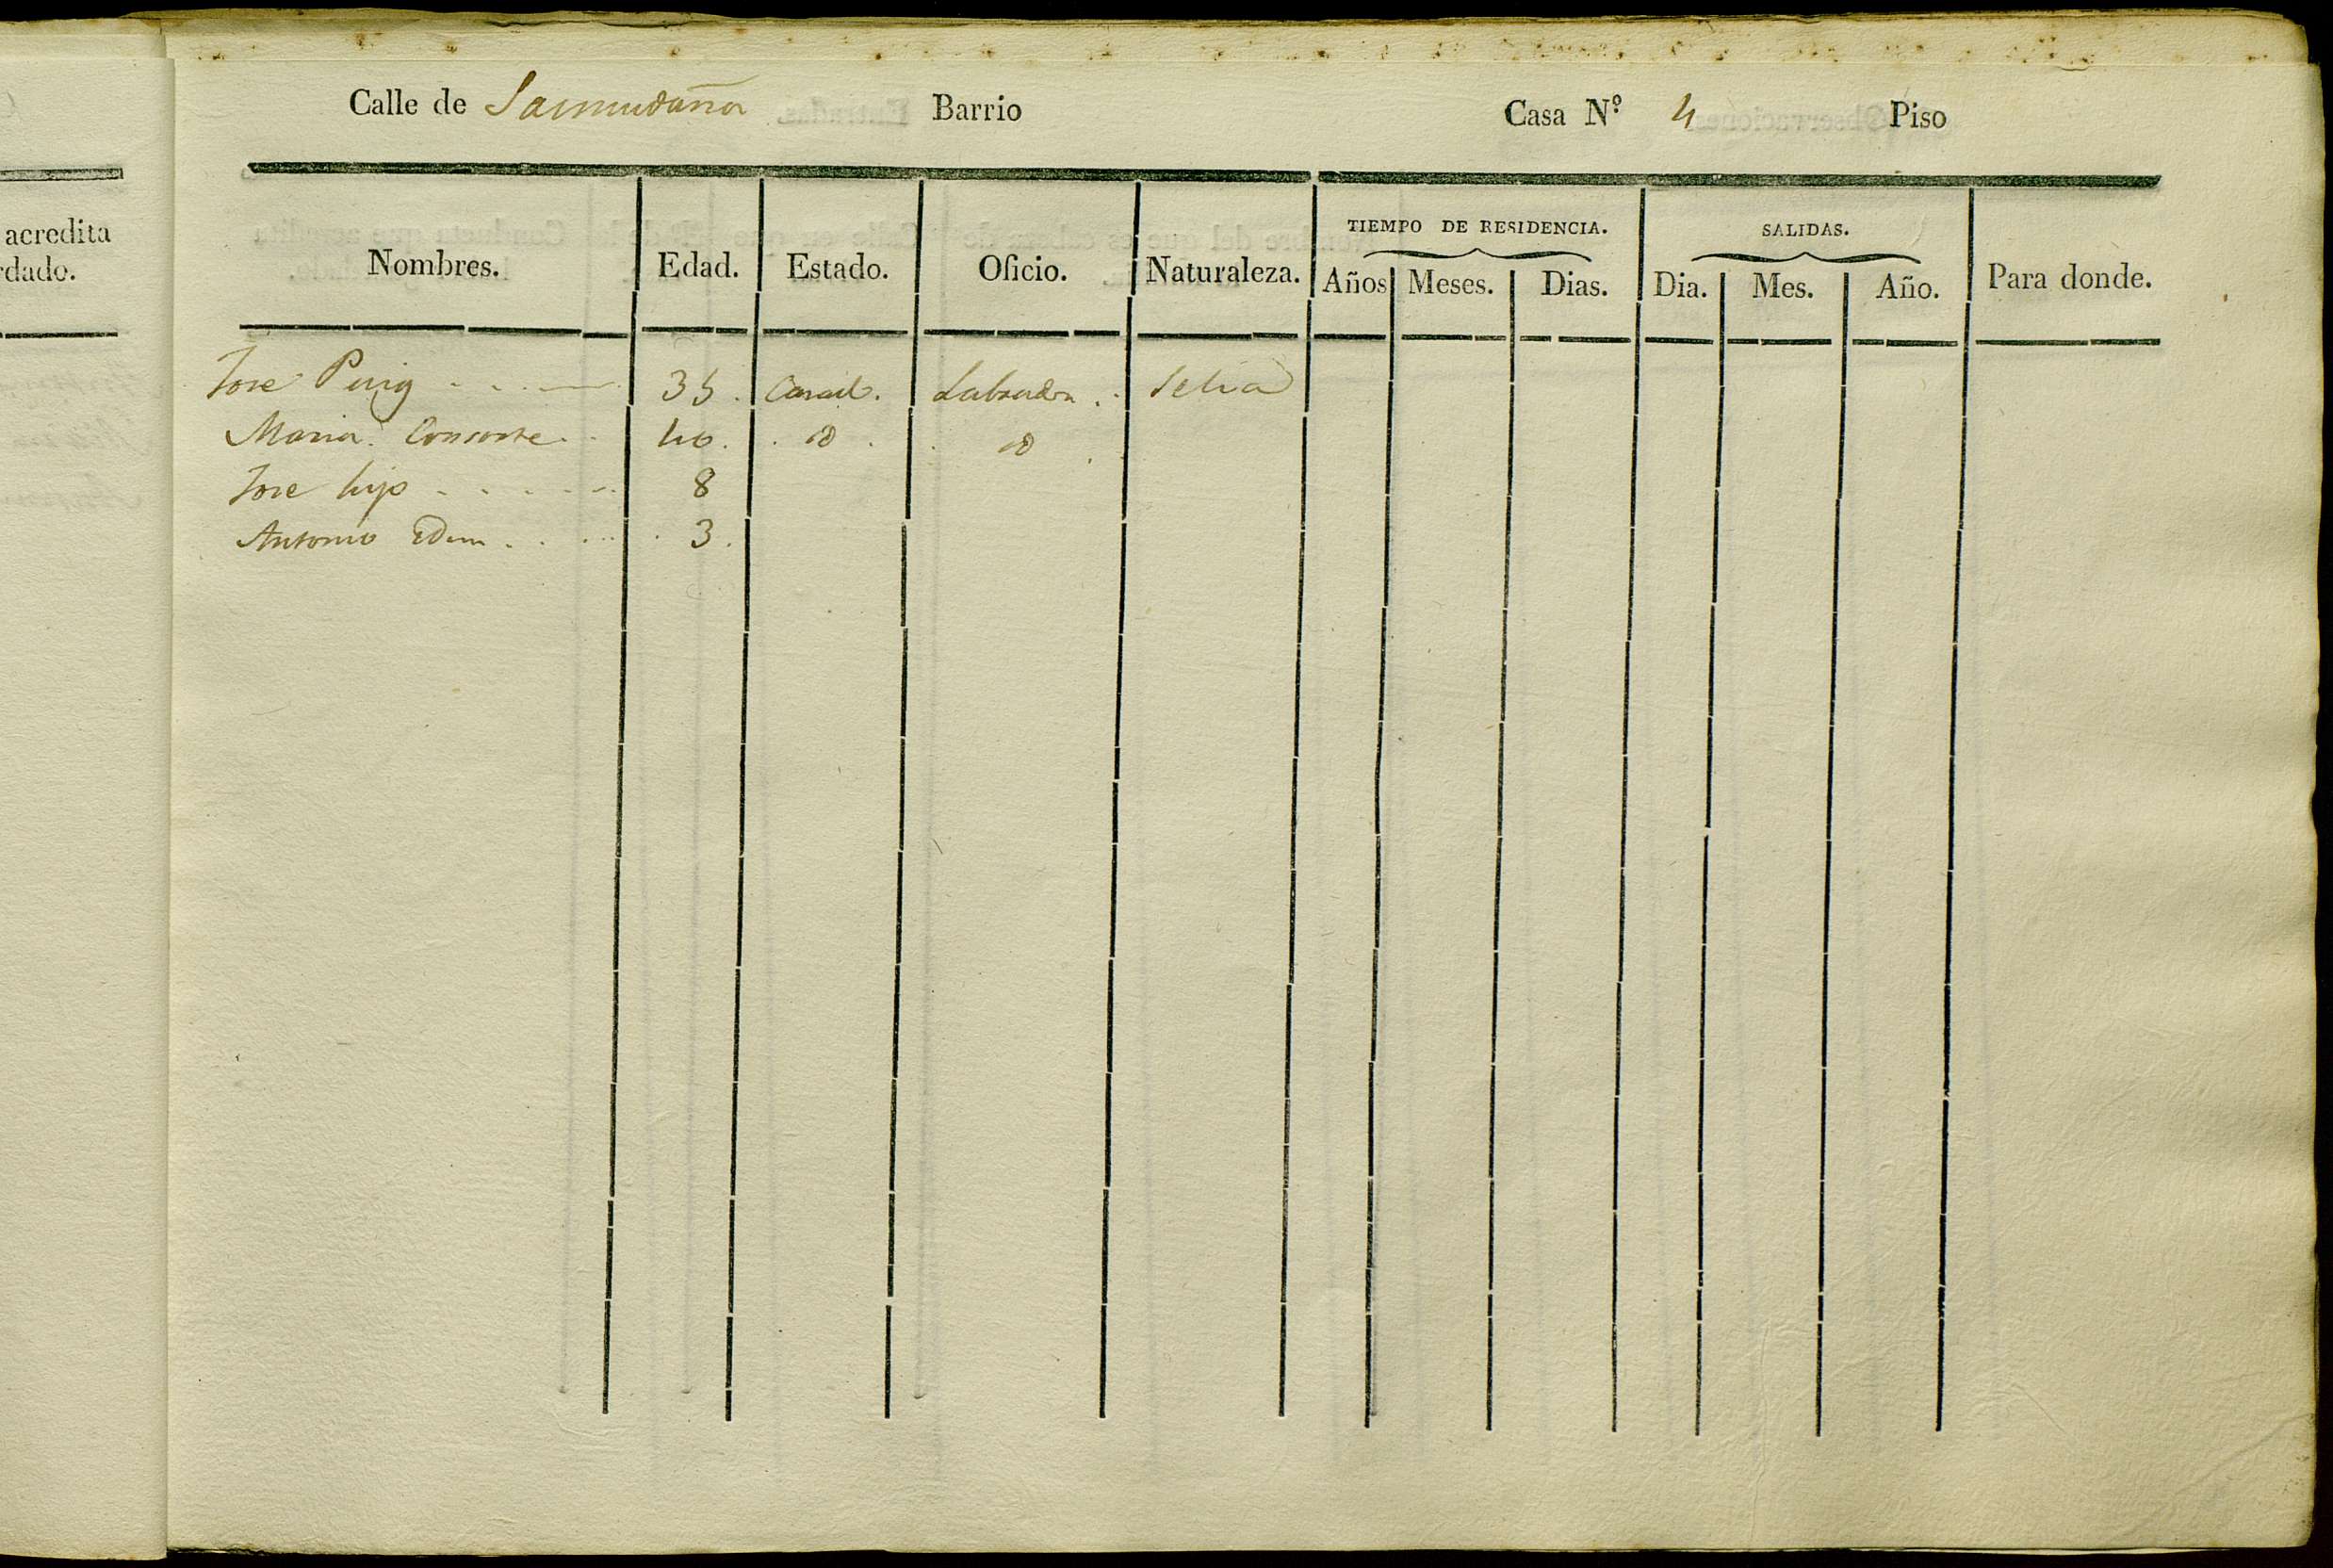 Calle de Samudaña Barrio Casa N.º 4 Piso
acredita
rdado.
TIEMPO DE RESIDENCIA. SALIDAS.
Nombres. Edad. Estado. Oficio. Naturaleza. Años Meses. Dias. Dia. Mes. Año. Para donde.
Jose Puig 35. Casad. Labrador. Selva
Maria Consorte 40. id. id.
Jose hijo 8
Antonio Idem 3.